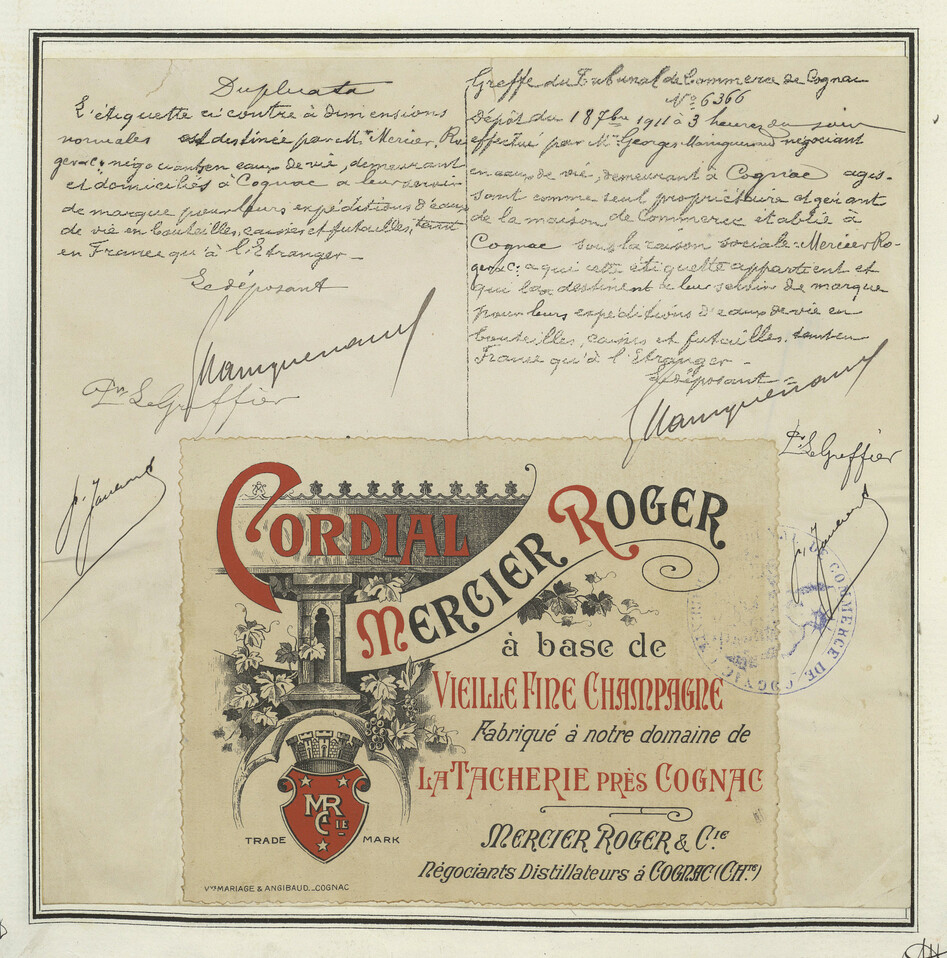 Duplicata
L'étiquette ci contre à dimensions
normales est destinée par Mrs Mercier, Ro-
ger & Cie négociants en eaux de vie, demeurant
et domiciliés à Cognac a leur servir
de marque pour leurs expéditions d'eaux
de vie en bouteilles, caisses et futailles, tant
en France qu'à l'Etranger_
Le déposant
Mainguenaud
Pr Le Greffier
Greffe du Tribunal de Commerce de Cognac
No 6366
Dépôt du 18 7bre 1911 à 3 heures du soir
effectué par Mr Georges Mainguenaud négociant
en eaux de vie, demeurant à Cognac agis-
sant comme seul propriétaire et gérant
de la maison de Commerce établie à
Cognac sous la raison sociale: Mercier Ro-
ger & Cie a qui cette étiquette appartient et
qui la destinent à leur servir de marque
pour leurs expéditions d'eaux de vie en
bouteilles, caisses et futailles, tant en
France qu'à l'Etranger_
Le déposant
Mainguenaud
Pr Le Greffier
CORDIAL
MERCIER ROGER
à base de
VIEILLE FINE CHAMPAGNE
Fabriqué à notre domaine de
LA TACHERIE PRÈS COGNAC
MERCIER ROGER & CIE
Négociants Distillateurs à COGNAC (CHTE)
MR
CIE
TRADE MARK
VVE MARIAGE & ANGIBAUD._COGNAC
COMMERCE DE COGNAC